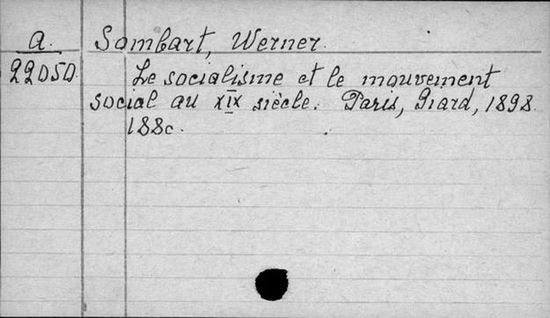 a. Sombart, Werner.
22050. Le socialisme et le mouvement
social au XIX siècle. Paris, Giard, 1898.
188c.